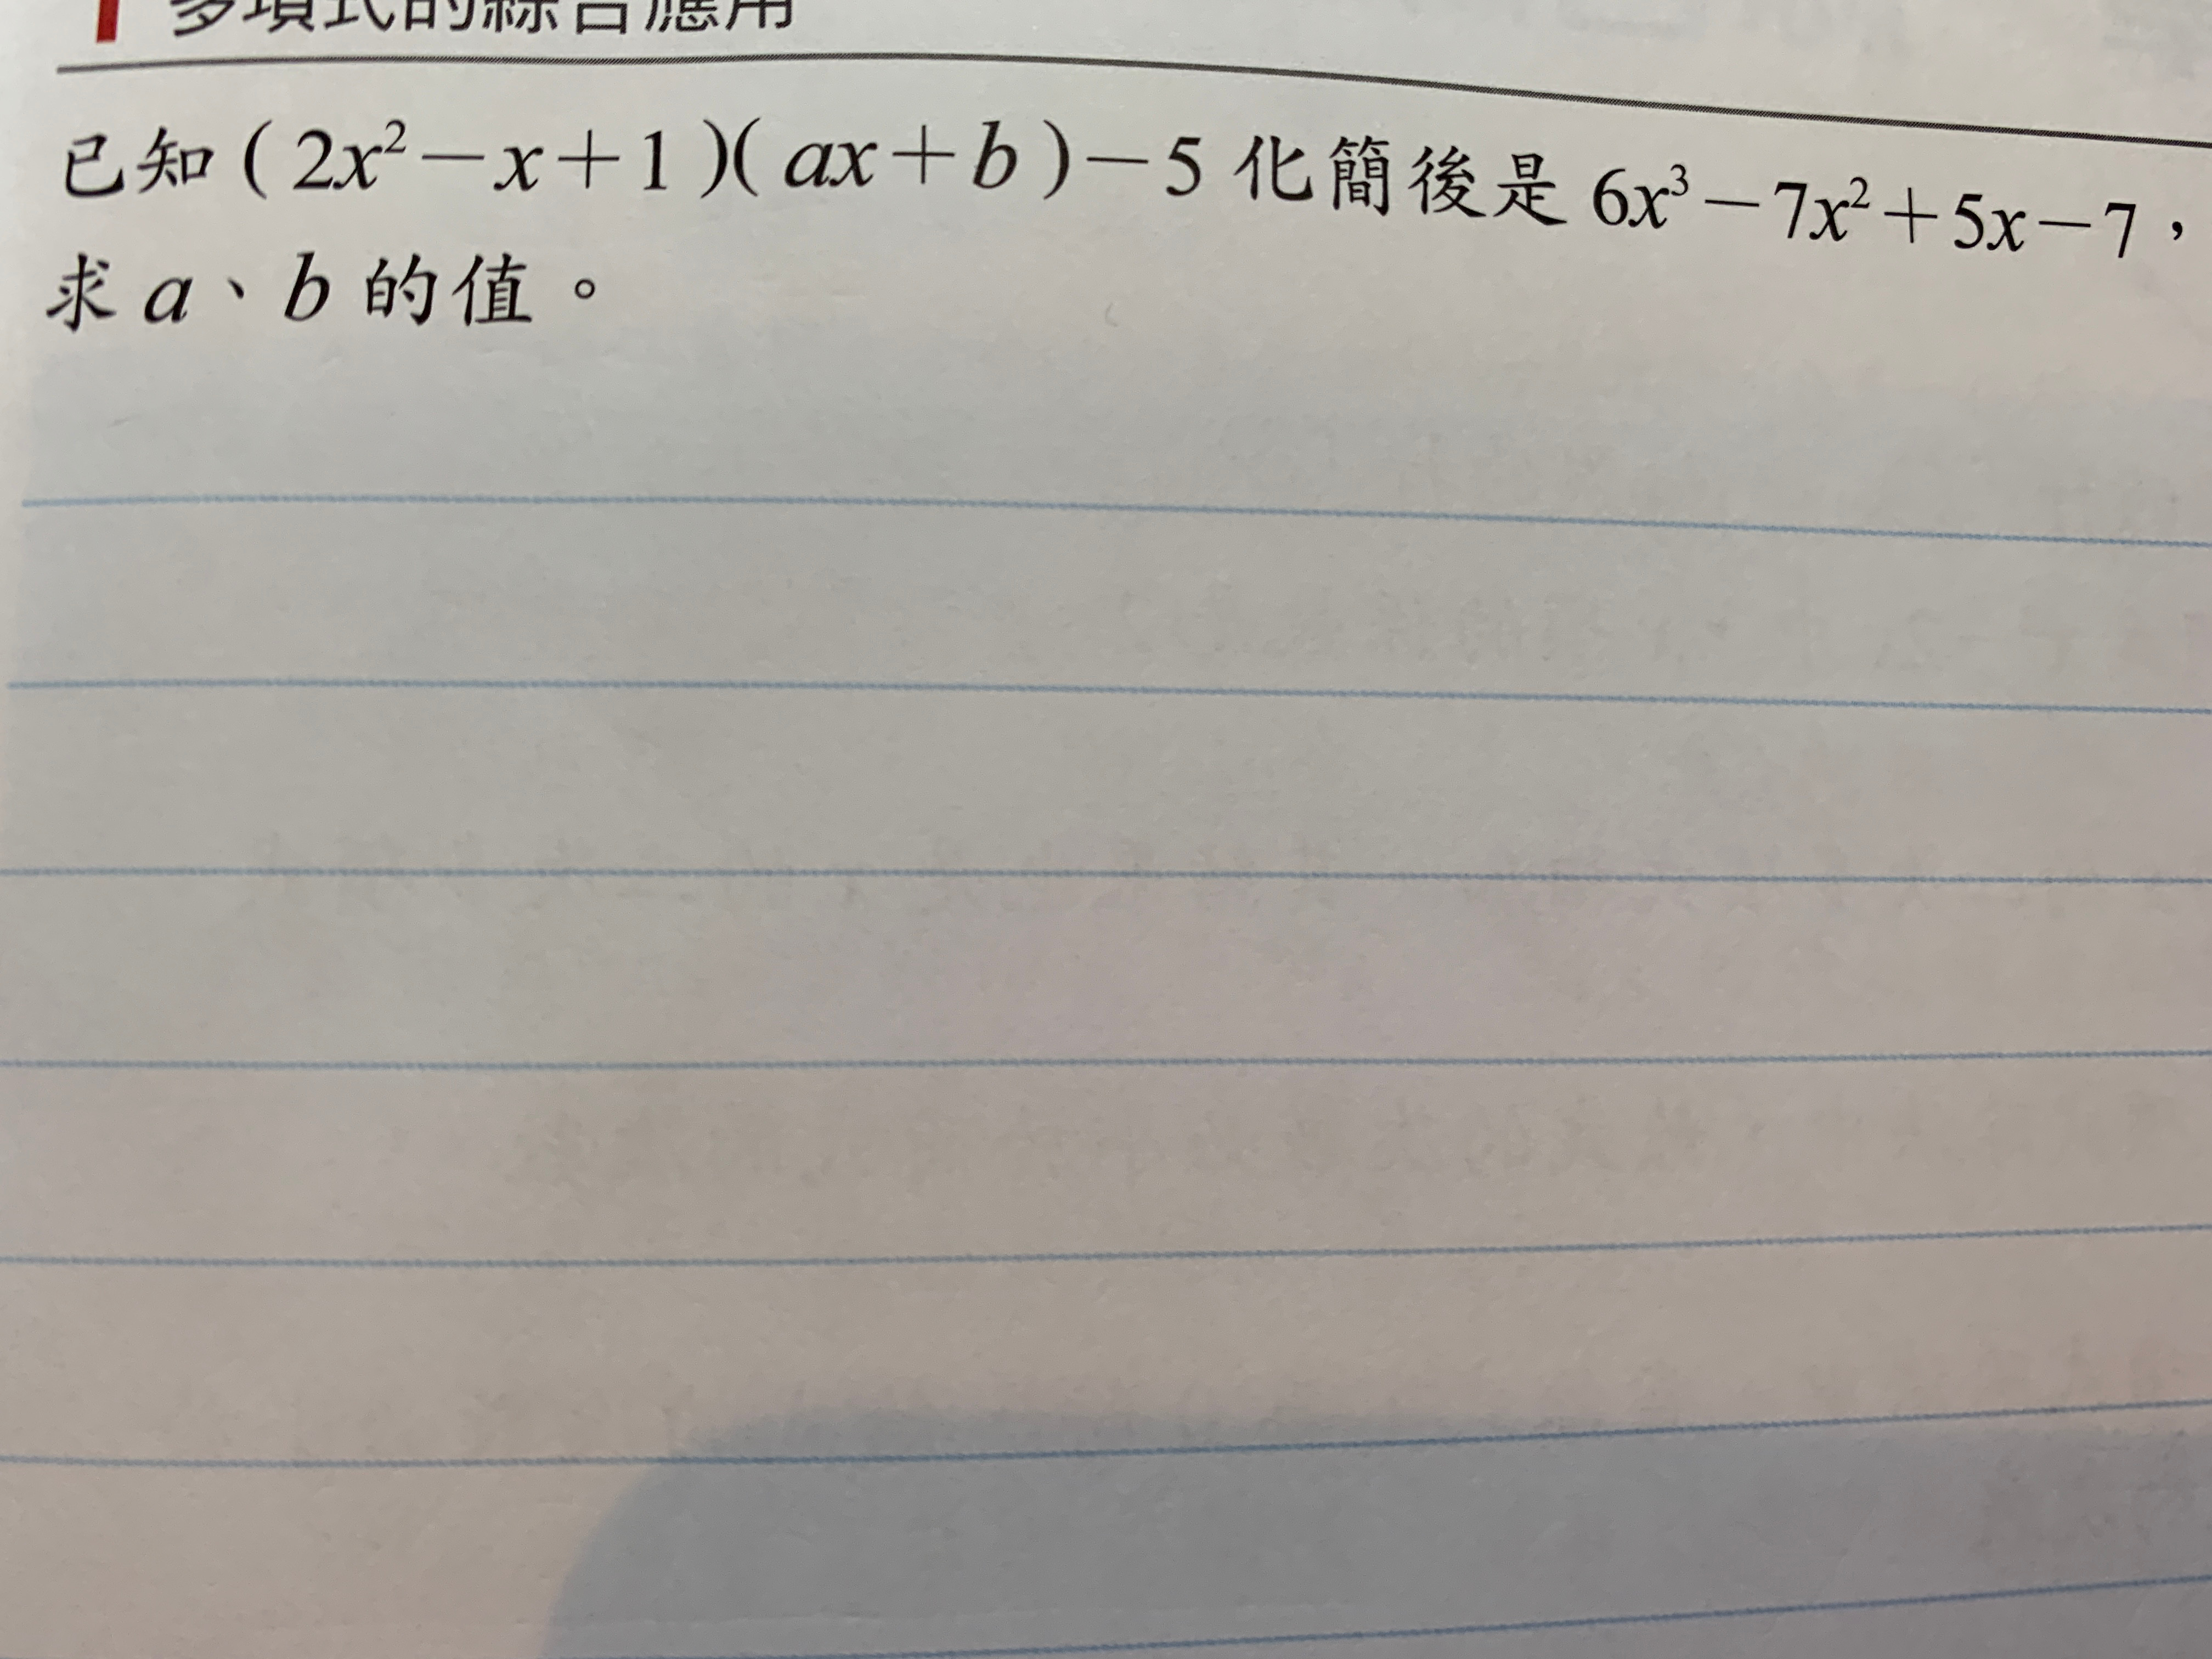 多項式的綜合應用
已知(2x²－x＋1)(ax＋b)－5化簡後是6x³－7x²＋5x－7，
求a、b的值。